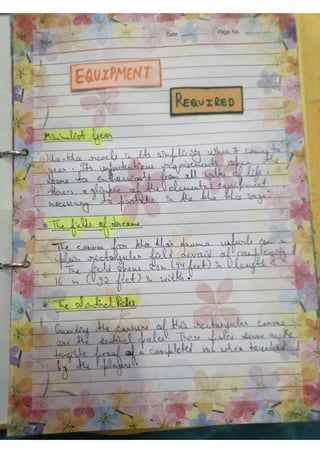 Date
Page No.
EQUIPMENT
REQUIRED
Minimalist Gear
kho-kho revels in its simplicity when it comes to
gear. Its unpretentious requirements open the
doors to enthusiasts from all walks of life.
Here's a glimpse of the elemental equipment
necessary to partake in the kho kho saga.
* The fields of dreams
The canvas for kho kho's drama unfurls on
plain rectangular field devoid of complexity
The field spans (44 feet) in length &
16 m ( feet) in width.
* The Sentinel Poles
Guarding the corners of this rectangular canvas
are the sentinel poles. These poles serve as the
tangible proof of a completed run when touched
by the players.